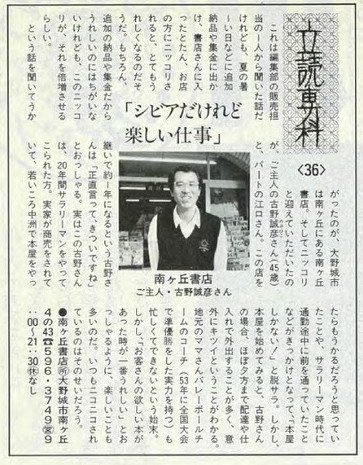 立読専科
〈36〉
「シビアだけれど
楽しい仕事」
これは編集部の販売担
当の一人から聞いた話だ
けれども、夏の暑
い日などに追加
納品や集金に出か
け、書店さんに入
ったとたん、お店
の方にニッコリさ
れると、とてもう
れしくなるのだそ
うだ。もちろん、
追加の納品や集金だから
うれしいのにはちがいな
いけれども、このニッコ
リが、それを倍増させる
らしい。
という話を聞いてうか
がったのが、大野城市
は南ヶ丘にある南ヶ丘
書店。そしてニッコリ
と迎えていただいたの
が、ご主人の古野誠彦さん(45歳)
と、パートの江口さん。この店を
継いで約1年になるという古野さ
んは「正直言って、きついですね」
とおっしゃる。実はこの古野さん
は、20年間サラリーマンをやって
こられた方。実家が商売をされて
いて、若いころ中洲で本屋をやっ
南ヶ丘書店
ご主人・古野誠彦さん
たらもうかるだろうと思ってい
たことや、サラリーマン時代に
通勤途中に前を通っていたこと
などがきっかけとなって、「本屋
しかない!」と脱サラ。しかし、
本屋を始めてみると、古野さん
の場合、ほぼ夕方まで配達や仕
入れで外出することが多く、意
外にキツイということがわかる。
地元のママさんバレーボールチ
ームのコーチ(53年に全国大会
で準優勝した実力を持つ)も
忙しくてできないという始末。
しかし、「お客さんの欲しい本が
あった時が一番うれしい」とお
っしゃるように、楽しいことも
多いのだ。いつもニコニコされ
ているのはそのせいだろう。
●南ヶ丘書店㊟大野城市南ヶ丘
4の43☎596・3749㊡9
:00〜21:30㊡なし